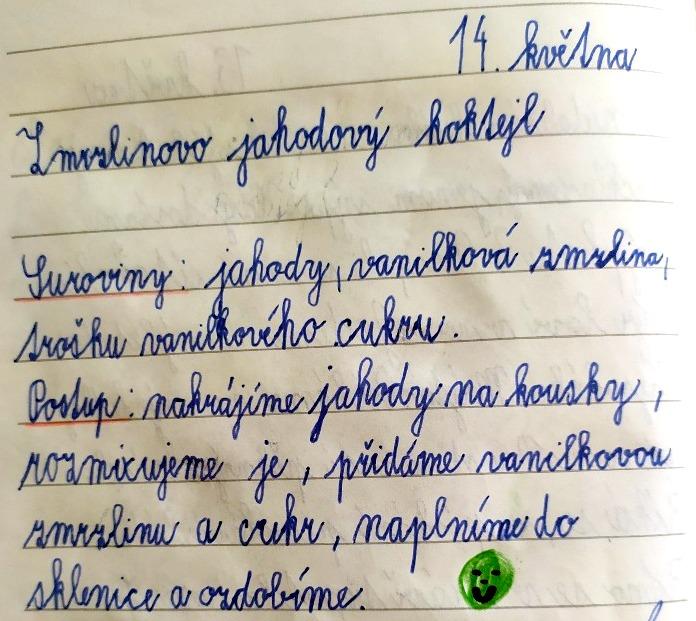 14. května
Zmrzlinovo jahodový koktejl
Suroviny: jahody, vanilková zmrzlina,
trošku vanilkového cukru.
Postup: nakrájíme jahody na kousky,
rozmixujeme je, přidáme vanilkovou
zmrzlinu a cukr, naplníme do
sklenice a ozdobíme.